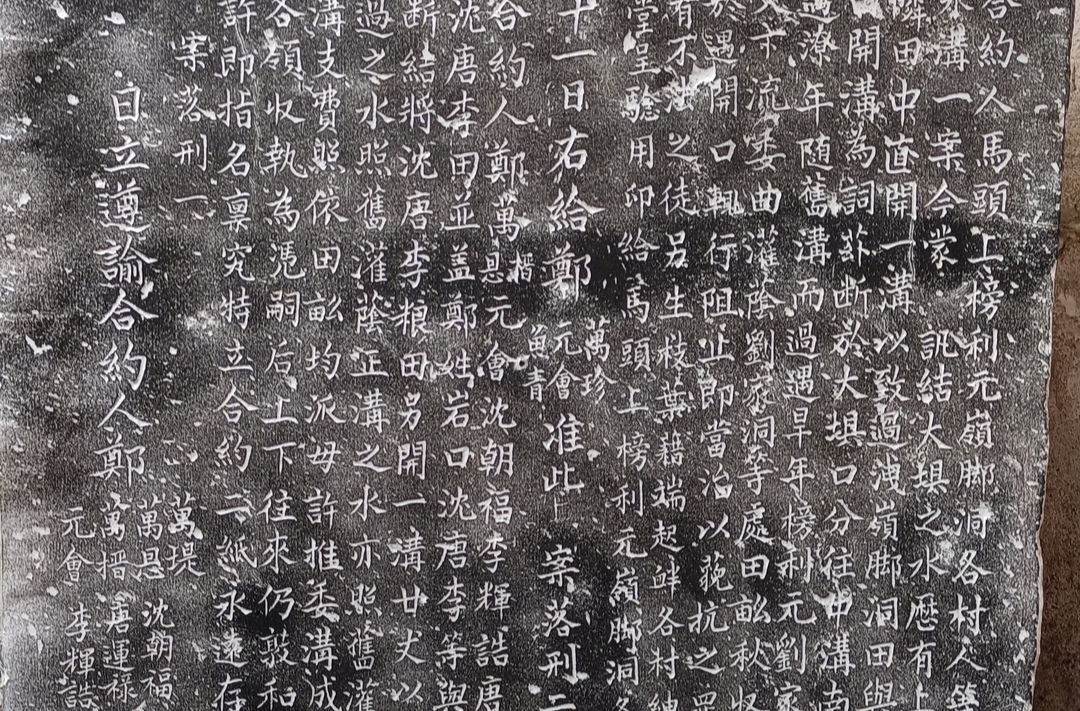 合約人馬頭上榜利元嶺脚洞各村人等
溝一案今蒙 訊結大垻之水歷有上
田中直開一溝以致過洩嶺脚洞田與
開溝為詞茲断於大垻口分往中溝南
遇潦年随舊溝而過遇旱年榜利元劉家
下流委曲灌蔭劉家洞等處田畝秋收
遇開口輒行阻止即當治以藐抗之罪
有不法之徒另生枝葉藉端起衅各村紳
堂呈驗用印給馬頭上榜利元嶺脚洞各
十一日右給鄭萬珍元會苗青准此 案落刑二
合約人鄭萬榗懸元會沈朝福李輝誥唐
沈唐李田並盖鄭姓岩口沈唐李等與
断給將沈唐李粮田另開一溝廿丈以
過之水照舊灌蔭正溝之水亦照舊灌
溝支費照依田畝均派毋許推委溝成
各領收執為憑嗣后上下往來仍敦和
許即指名禀究特立合約二紙永遠存
案落刑一
日立遵諭合約人鄭萬堤萬懸萬榗元會 沈朝福唐運祿李輝誥